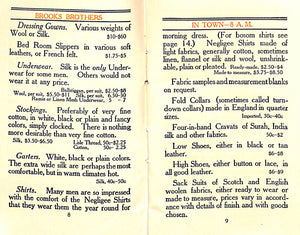 BROOKS BROTHERS
Dressing Gowns. Various weights of
Wool or Silk. $10-$60
Bed Room Slippers in various soft
leathers, or French felt. $1.75-$5
Underwear. Silk is the only Under-
wear for some men. Others would not
wear it at any price.
Balbriggan, per suit, $2.50-$5
Wool, per suit,
Ramie or Linen Mesh Underwear, $
Stockings. Preferably of very fine
cotton, in white, black or plain and fancy
colors, simply clocked. There is nothing
more desirable than very fine cotton.
Silk, $3.50-$6.50 Lisle Thread, 50c-$2.75
Cotton, 50c-$2.25
Garters. White, black or plain colors.
The extra wide silk are perhaps the most
comfortable, but in warm climates hot.
Silk, 40c-50c
Shirts. Many men are so impressed
with the comfort of the Negligee Shirts
that they wear them the year round for
8
IN TOWN—8 A. M.
morning dress. (For bosom shirts see
page 14.) Negligee Shirts made of
light fabrics, generally cotton, sometimes
linen, flannel or silk and wool, unstarched,
preferable in plain colors.
Ready made, $2-$5.50
Made to measure, $3.75-$8.50
Fabric samples and measurement blanks
on request.
Fold Collars (sometimes called turn-
down collars) made in England in quarter
sizes. Imported, 50c-40c
Four-in-hand Cravats of Surah, India
silk and other fabrics. $1-
Low Shoes, either in black or tan
leather. $6-
High Shoes, either button or lace, in
all good leathers. $6-$9
Sack Suits of Scotch and English
woollen fabrics, either ready-made or
made to measure. Prices vary in accor-
dance with detail of finish and with goods
chosen.
9